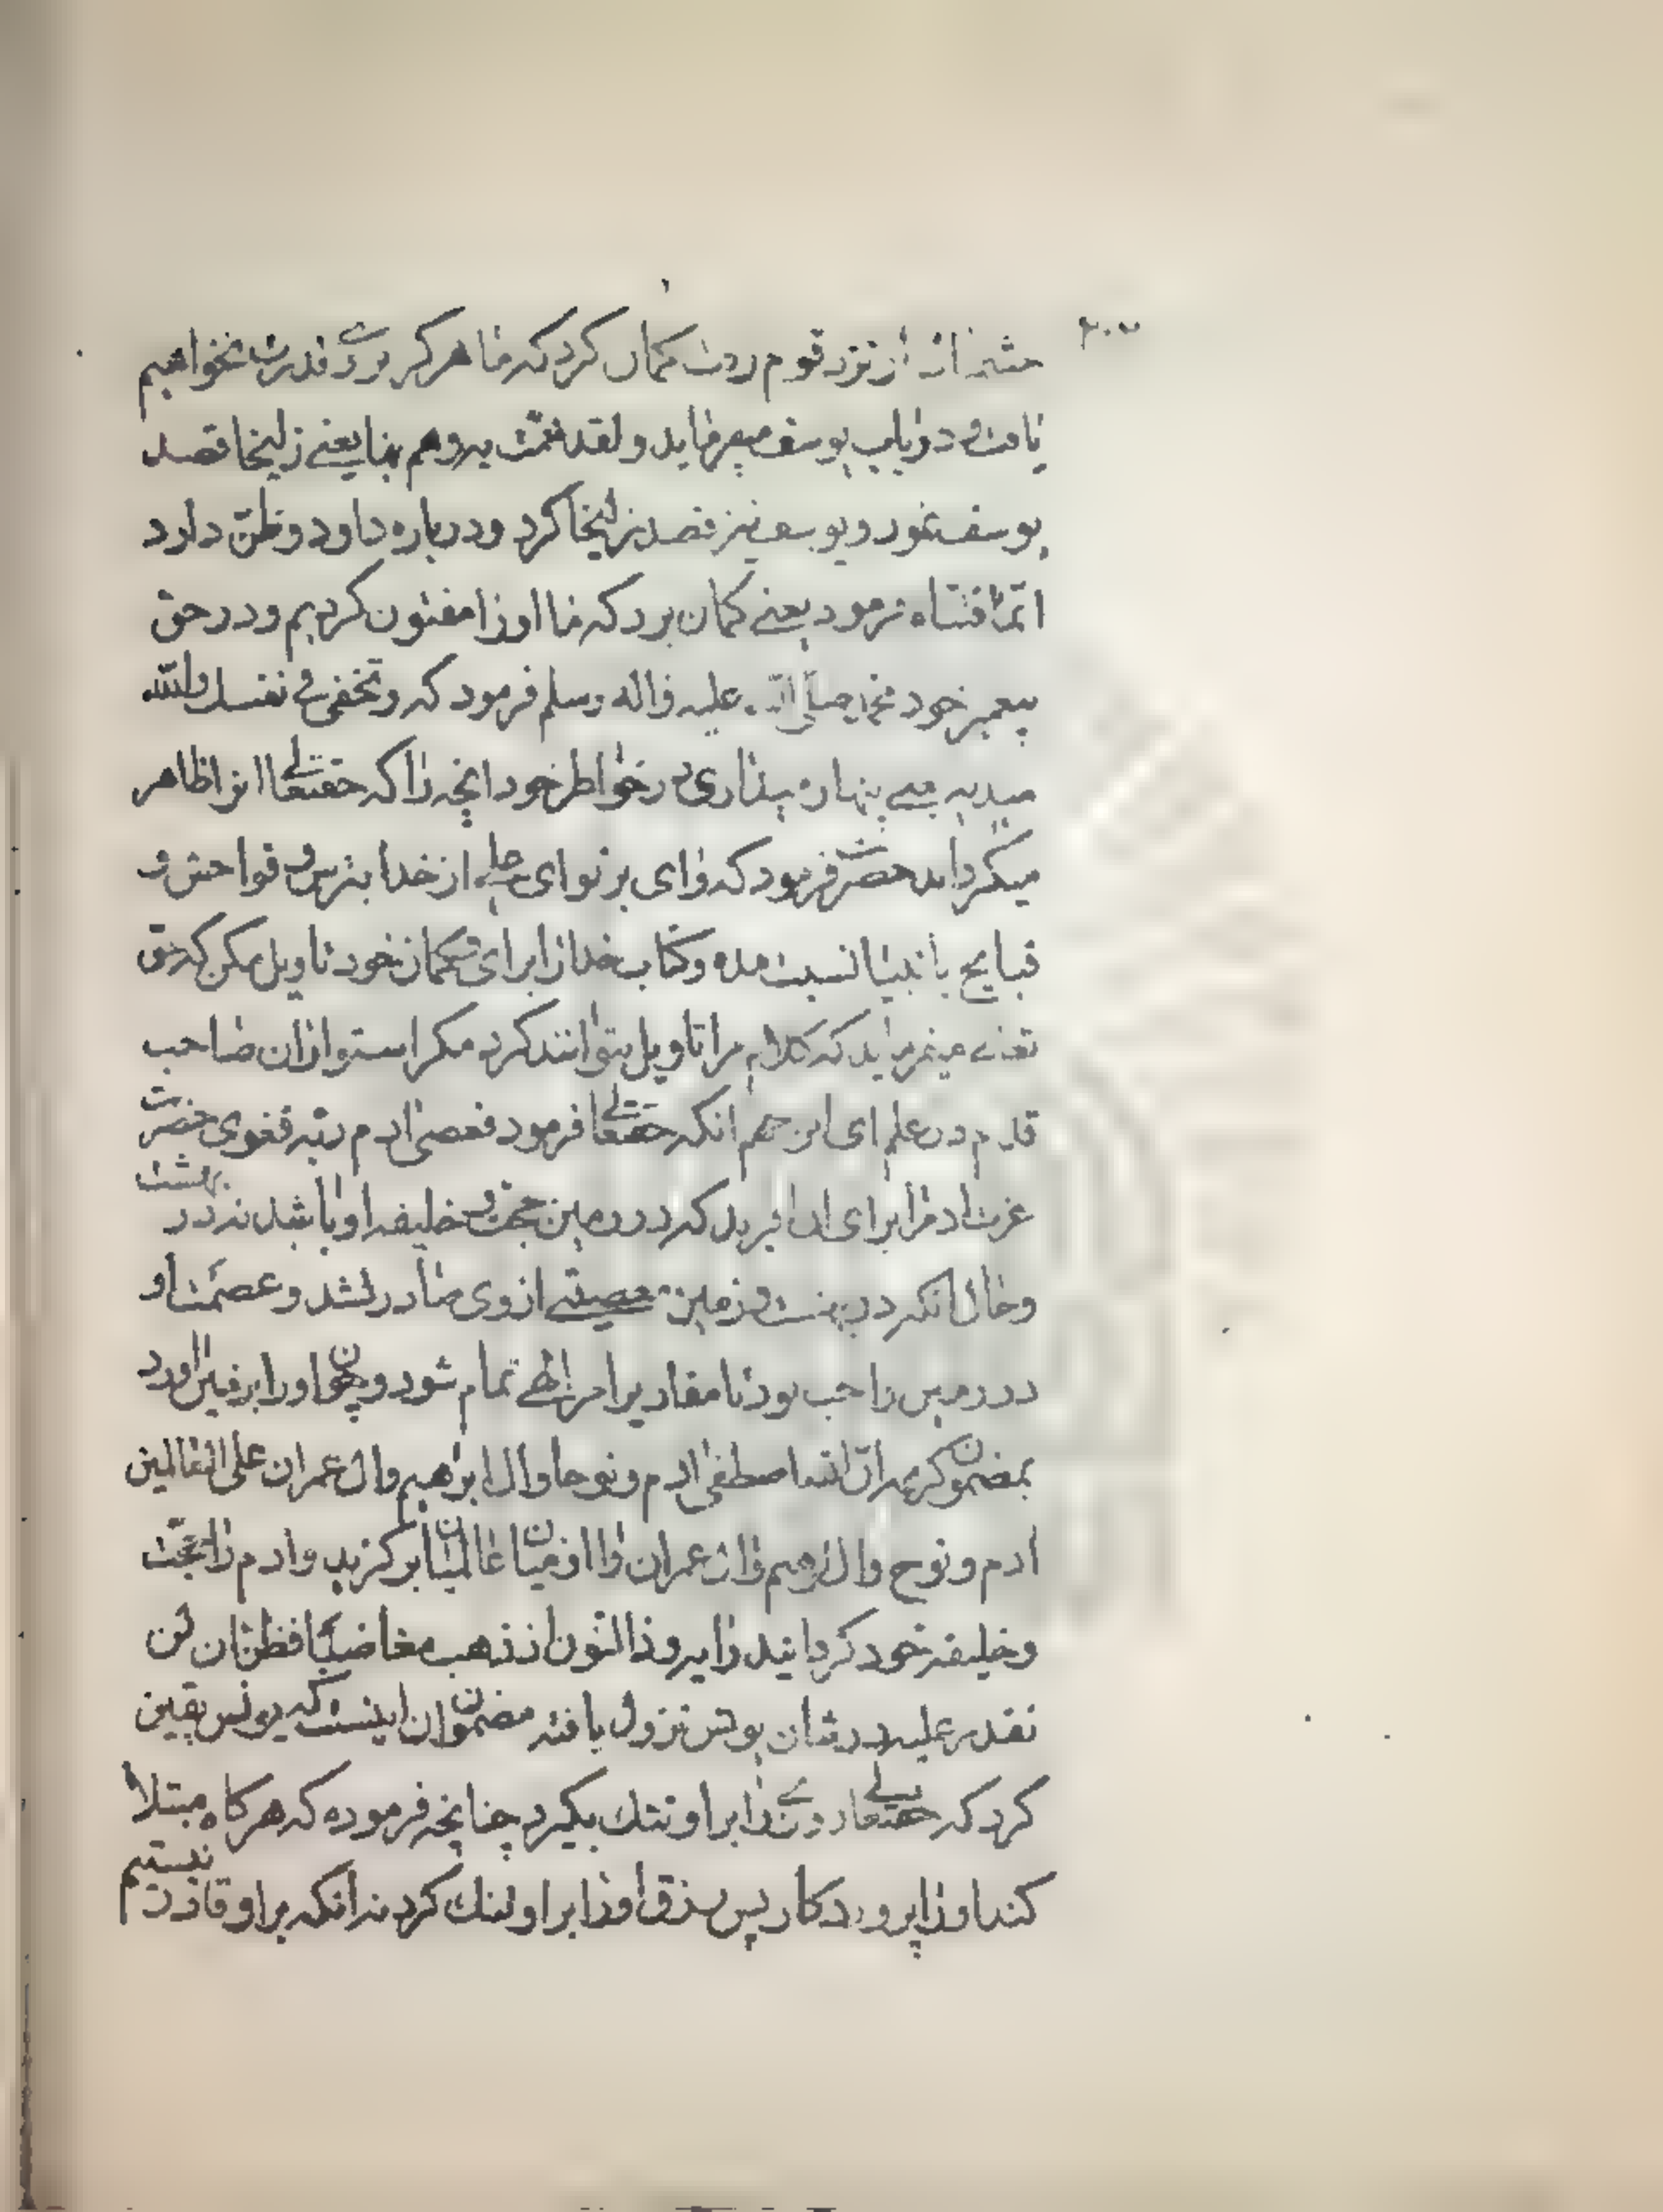 از نزد قوم کمان کرد که ما هرکز بروی قدرت نخواهیم
یافت و در باب یوسف میفرماید و لقد همّت به و هم بها یعنے زلیخا قصد
یوسف نمود و یوسف نیز قصد زلیخا کرد و درباره داود و ظنّ داود
انّما فتناه فرمود یعنے کمان برد که ما او را مفتون کردیم و در حق
پیغمبر خود محمد صلی الله علیه واله وسلم فرمود که و تخفی فی نفسك ما الله
مبدیه یعنے پنهان میداری در خواطر خود انچه را که حقتعالی انرا ظاهر
میکرداند حضرت فرمود که وای بر تو ای علی از خدا بترس و فواحش و
قبایح بانبیا نسبت مده و کتاب خدا را برای و کمان خود تاویل مکن که حق
تعالے میفرماید که کلام مرا تاویل نتوانند کرد مکر استواران صاحب
قدم در علم ای ابن جهم انکه حقتعالی فرمود فعصی ادم ربه فغوی حضرت
عزت ادم را برای ان افرید که در زمین حجت و خلیفه او باشد نه در بهشت
و حال انکه در بهشت نه زمین معصیتے از وی صادر نشد و عصمت او
در زمین واجب بود تا مقادیر امر الهے تمام شود و چون او را بر زمین اورد
بمضمون کریمه انّ الله اصطفی ادم و نوحا وال ابراهیم وال عمران علی العالمین
ادم و نوح وال ابرهیم وال عمران را از میان عالمیان برکزید و ادم را حجّت
و خلیفه خود کردانید و ایه و ذا النون اذ ذهب مغاضبًا فظن ان لن
نقدر علیه در شان یونس نزول یافته مضمون ان اینست که یونس یقین
کرد که حقتعالی روزی را بر او تنك نکیرد چنانچه فرموده که هرکاه مبتلا
کند او را پروردکار پس رزق او را بر او تنك کرد نه انکه بر او قادر نیستیم